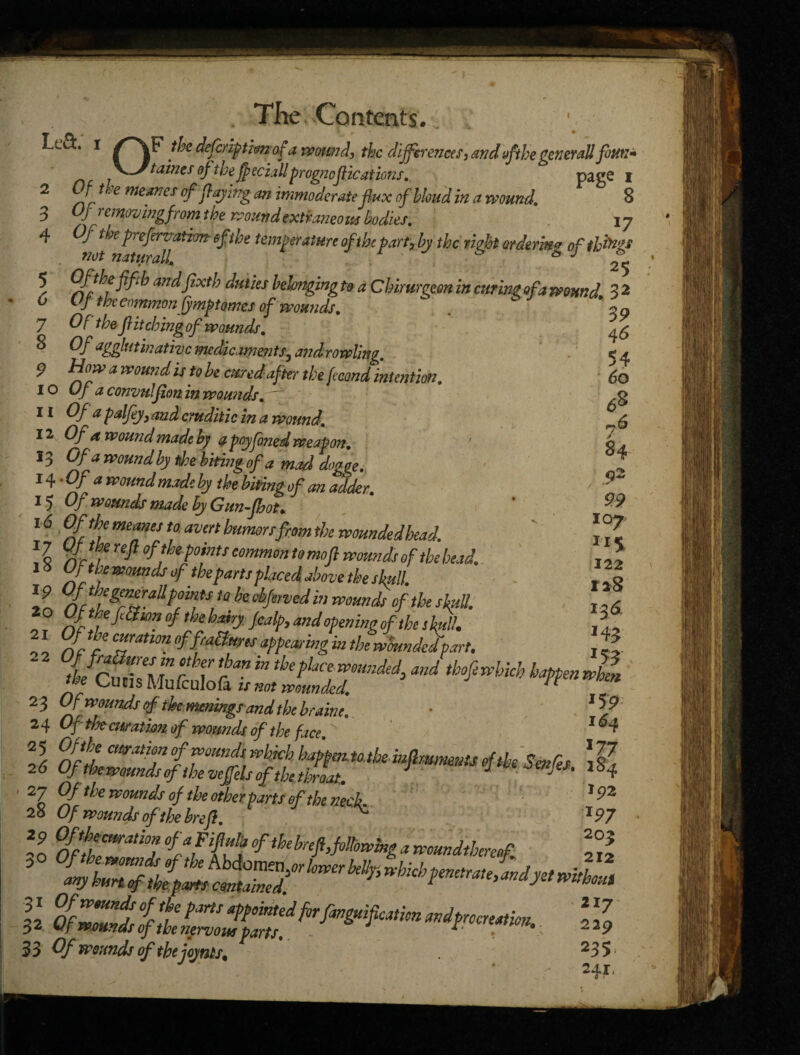 The Contents.
Lect. 1 OF the descriptiō of a wound, the differences, and of the generall foun-
taines of the speciall prognostications. page 1
2 Of the meanes of staying an immoderate flux of bloud in a wound. 8
3 Of removing from the wound extraneous bodies. 17
4 Of the preservation of the temperature of the part, by the right ordering of things
not naturall. 25
5 Of the fifth and sixth duties belonging to a Chirurgeon in curing of a wound. 32
6 Of the common symptomes of wounds. 39
7 Of the stitching of wounds. 46
8 Of agglutinative medicaments, and rowling. 54
9 How a wound is to be cured after the second intention. 60
10 Of a convulsion in wounds. 68
11 Of a palsey, and cruditie in a wound. 76
12 Of a wound made by a poysoned weapon. 84
13 Of a wound by the biting of a mad dogge. 92
14 Of a wound made by the biting of an adder. 99
15 Of wounds made by Gun-shot. 107
16 Of the meanes to avert humors from the wounded head. 115
17 Of the rest of the points common to most wounds of the head. 122
18 Of the wounds of the parts placed above the skull. 128
19 Of the generall points to be observed in wounds of the skull. 136
20 Of the section of the hairy scalp, and opening of the skull. 143
21 Of the curation of fractures appearing in the wounded part.
22 Of fractures in other than in the place wounded, and those which happen when
the Cutis Musculosa is not wounded. 159
23 Of wounds of the menings and the braine. 164
24 Of the curation of wounds of the face. 177
25 Of the curation of wounds which happen to the instruments of the Senses. 184
26 Of the wounds of the vessels of the throat. 192
27 Of the wounds of the other parts of the neck. 197
28 Of wounds of the brest. 203
29 Of the curation of a Fistula of the brest, following a wound thereof. 212
30 Of the wounds of the Abdomen, or lower belly, which penetrate, and yet without
any hurt of the parts contained. 217
31 Of wounds of the parts appointed for sanguification and procreation. 229
32 Of wounds of the nervous parts. 235
33 Of wounds of the joynts. 241